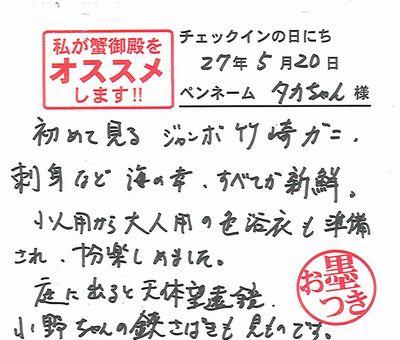 私が蟹御殿を
オススメ
します!!
チェックインの日にち
27年5月20日
ペンネーム タカちゃん 様
初めて見る ジャンボ竹崎ガニ、
刺身など 海の幸、すべてが新鮮。
小人用から大人用の色浴衣も準備
され、十分楽しめました。
庭に出ると天体望遠鏡、
小野ちゃんの鋏さばきも見ものです。
お墨つき